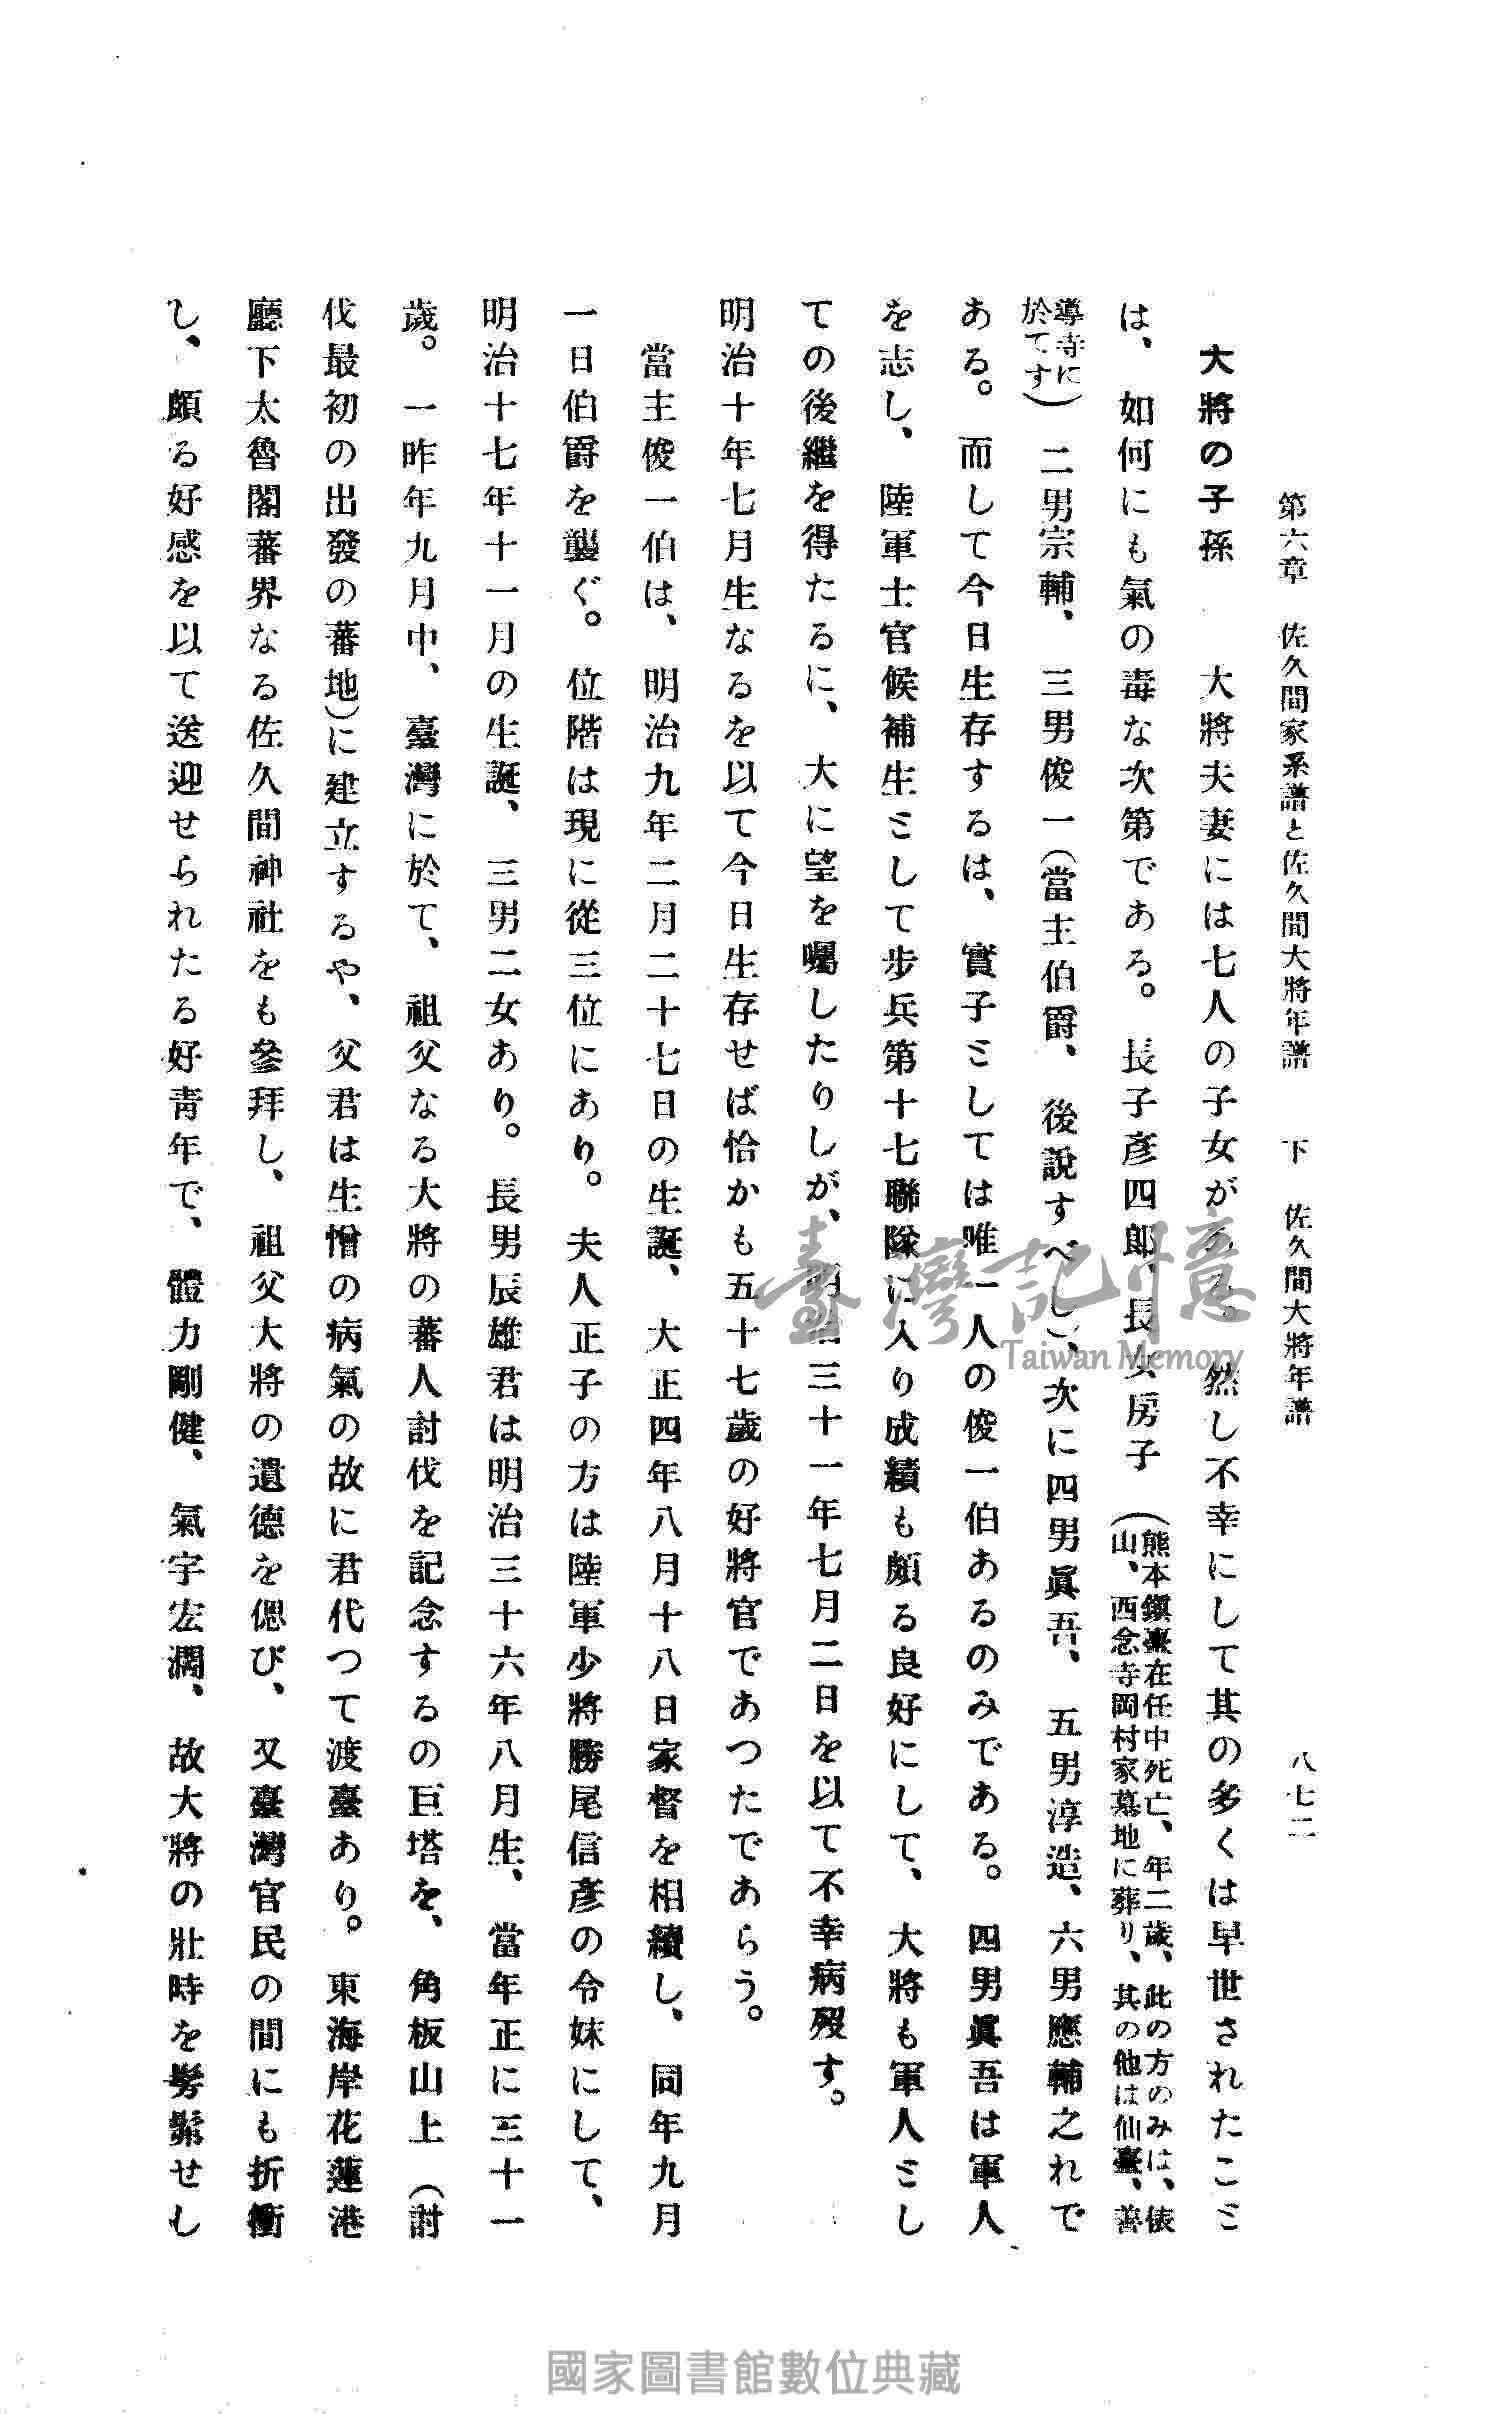 第六章　佐久間家系譜と佐久間大將年譜　下　佐久間大將年譜　八七二
大將の子孫　大將夫妻には七人の子女がある。然し不幸にして其の多くは早世されたこと
は、如何にも氣の毒な次第である。長子彥四郎、長女房子（熊本鎭臺在任中死亡、年二歲、此の方のみは、俵
山、西念寺岡村家墓地に葬り、其の他は仙臺、善
導寺に
於てす）二男宗輔、三男俊一（當主伯爵、後說すべし）、次に四男眞吾、五男淳造、六男應輔之れで
ある。而して今日生存するは、實子としては唯一人の俊一伯あるのみである。四男眞吾は軍人
を志し、陸軍士官候補生として步兵第十七聯隊に入り成績も頗る良好にして、大將も軍人とし
ての後繼を得たるに、大に望を囑したりしが、明治三十一年七月二日を以て不幸病歿す。
明治十年七月生なるを以て今日生存せば恰かも五十七歲の好將官であつたであらう。
當主俊一伯は、明治九年二月二十七日の生誕、大正四年八月十八日家督を相續し、同年九月
一日伯爵を襲ぐ。位階は現に從三位にあり。夫人正子の方は陸軍少將勝尾信彥の令妹にして、
明治十七年十一月の生誕、三男二女あり。長男辰雄君は明治三十六年八月生、當年正に三十一
歲。一昨年九月中、臺灣に於て、祖父なる大將の蕃人討伐を記念するの巨塔を、角板山上（討
伐最初の出發の蕃地）に建立するや、父君は生憎の病氣の故に君代つて渡臺あり。東海岸花蓮港
廳下太魯閣蕃界なる佐久間神社をも參拜し、祖父大將の遺德を偲び、又臺灣官民の間にも折衝
し、頗る好感を以て送迎せられたる好靑年で、體力剛健、氣宇宏濶、故大將の壯時を髣髴せし
臺灣記憶
Taiwan Memory
國家圖書館數位典藏